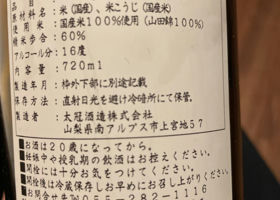 品目
原材料名:米(国産)、米こうじ(国産米)
使用米:国産米100%使用(山田錦100%)
精米歩合:60%
アルコール分:16度
内容量:720ml
製造年月:枠外下部に別途記載
保存方法:直射日光を避け冷暗所にて保管。
製造者:太冠酒造株式会社
山梨県南アルプス市上宮地57
■お酒は20歳になってから。
■妊娠中や授乳期の飲酒はお控えください。
■開栓には十分お気をつけてください。
■開栓後は冷蔵保存しお早めにお召し上がりください。
お問合せ先Tel 055-282-1116